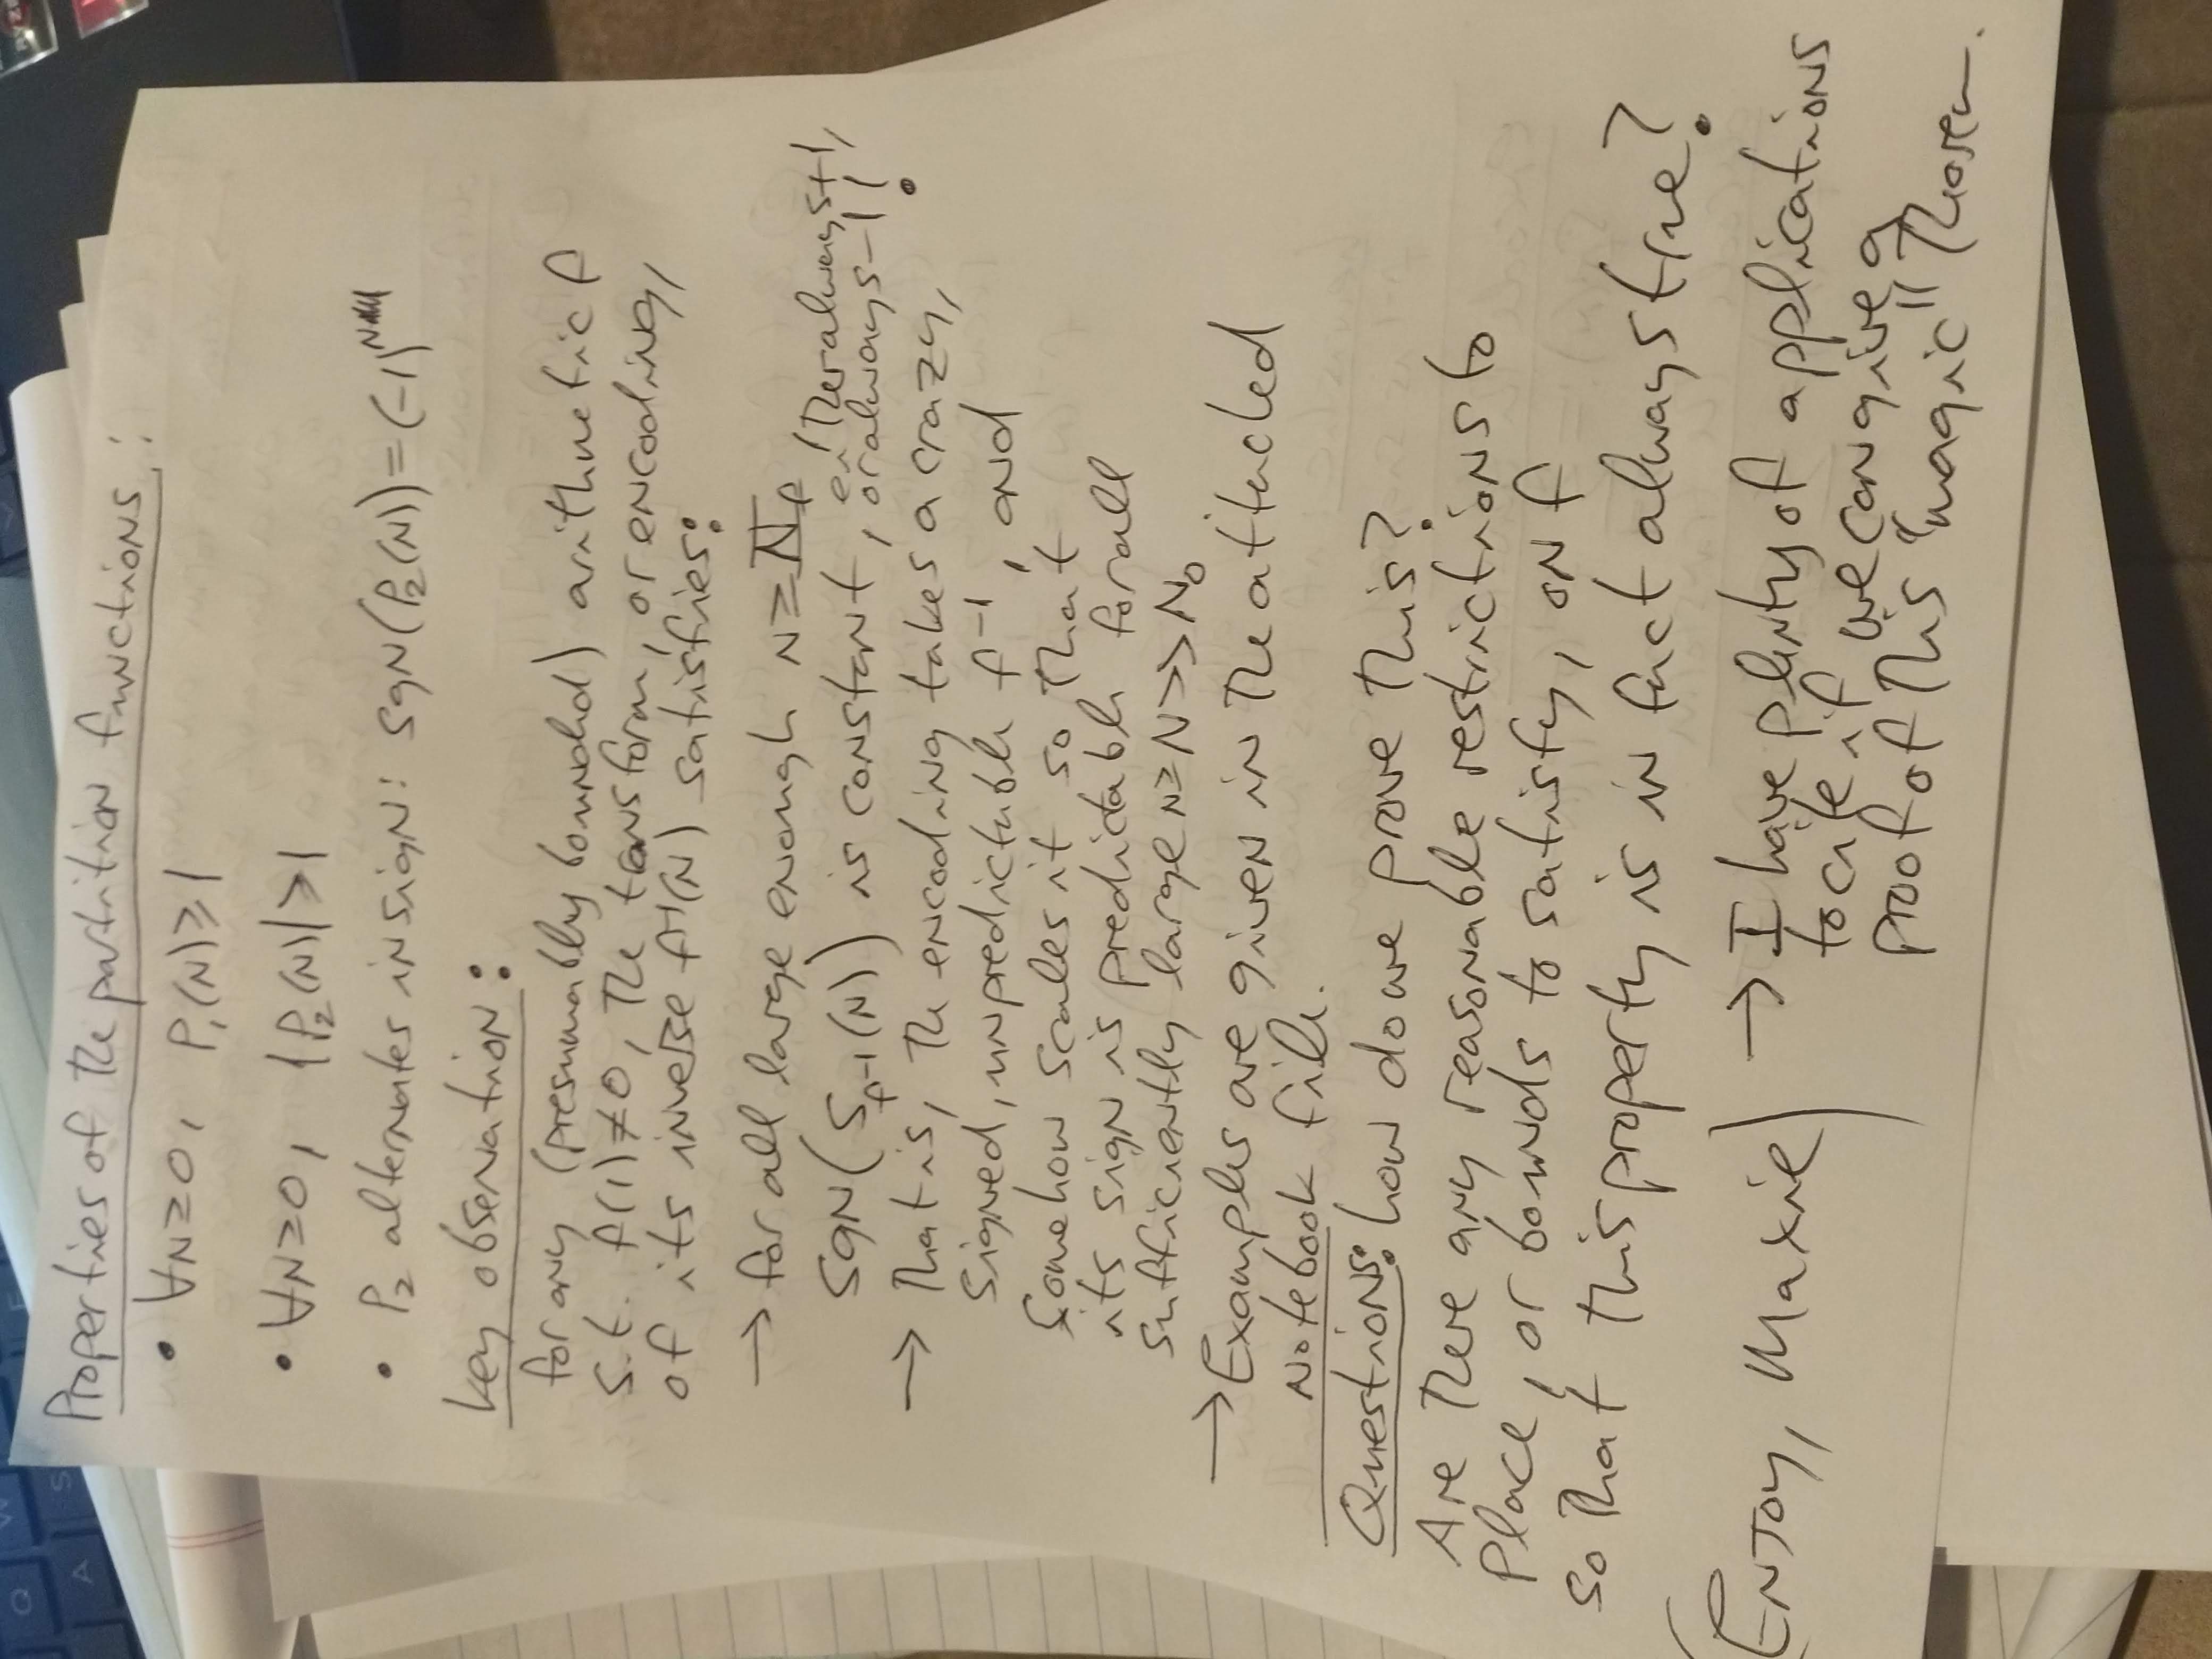 Properties of the partition functions:
• ∀N≥0, P₁(N)≥1
• ∀N≥0, |P₂(N)|≥1
• P₂ alternates in sign: sgn(P₂(N))=(-1)^N
key observation:
for any (presumably bounded) arithmetic f
s.t. f(1)≠0, the transform, or encoding,
of its inverse f⁻¹(N) satisfies:
→ for all large enough N≥N_f
sgn(S_f⁻¹(N)) is constant, either always+1,
or always-1!
→ That is, the encoding takes a crazy,
signed, unpredictable f⁻¹, and
somehow scales it so that
its sign is predictable for all
sufficiently large N≥N>>N₀.
→ Examples are given in the attached
notebook file.
Questions: how do we prove this?
Are there any reasonable restrictions to
place, or bounds to satisfy, on f
so that this property is in fact always true?
(Enjoy, Maxie)
→ I have plenty of applications
to cite if we can give a
proof of this "magic" Theorem.
Q
A
S
RYZE